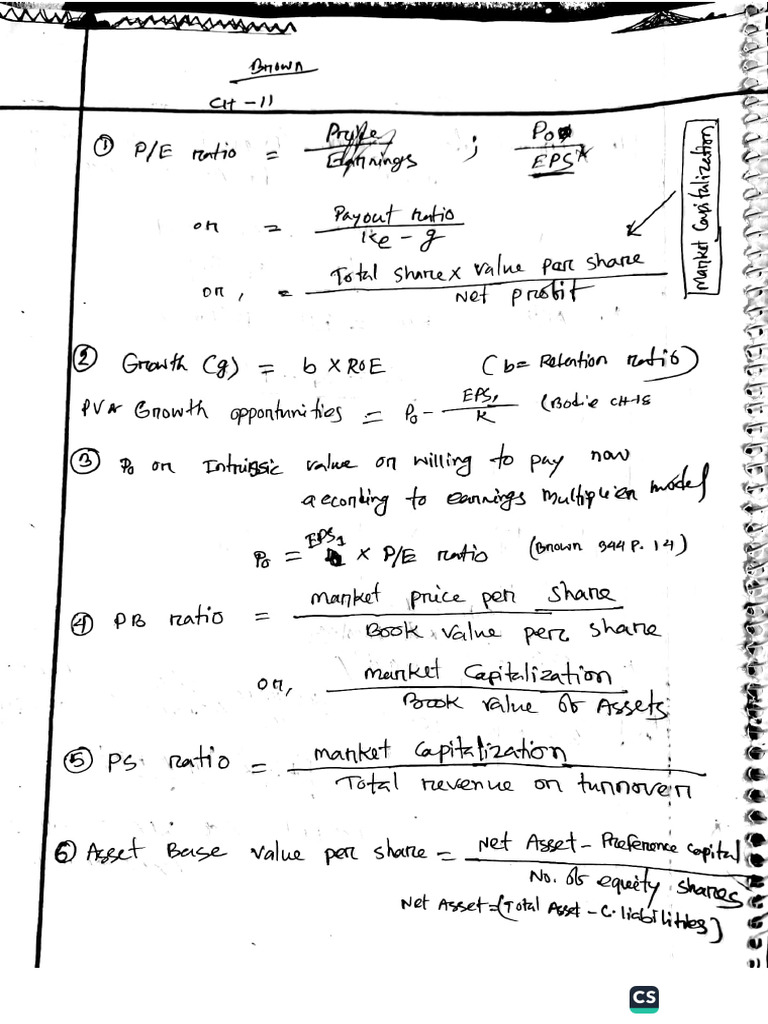 Brown
CH - 11
① P/E ratio = Price / Earnings ; P₀ / EPS*
or = Payout ratio / Ke - g
or, = Total share x value per share / Net profit
Market Capitalization
② Growth (g) = b x ROE (b = Retention ratio)
PV Growth opportunities = P₀ - EPS₁ / K (Bodie CH-18
③ P₀ or Intrinsic value or willing to pay now
according to earnings multiplier model
P₀ = EPS₁ x P/E ratio (Brown 344 P. 14)
④ PB ratio = market price per share / Book value per share
or, market Capitalization / Book value of Assets
⑤ PS ratio = market Capitalization / Total revenue or turnover
⑥ Asset Base value per share = Net Asset - Preference capital / No. of equity shares
Net Asset = (Total Asset - C. liabilities)
CS